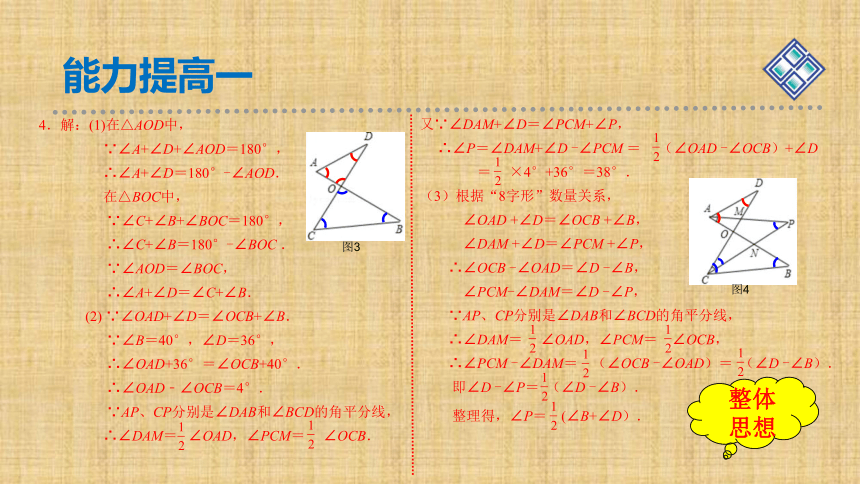 能力提高一
4．解：(1)在△AOD中，
∵∠A+∠D+∠AOD＝180°，
∴∠A+∠D＝180°-∠AOD．
在△BOC中，
∵∠C+∠B+∠BOC＝180°，
∴∠C+∠B＝180°-∠BOC．
∵∠AOD＝∠BOC，
∴∠A+∠D＝∠C+∠B．
(2) ∵∠OAD+∠D＝∠OCB+∠B．
∵∠B＝40°，∠D＝36°，
∴∠OAD+36°＝∠OCB+40°．
∴∠OAD﹣∠OCB＝4°．
∵AP、CP分别是∠DAB和∠BCD的角平分线，
∴∠DAM＝1/2∠OAD，∠PCM＝1/2∠OCB．
D
A
O
C
B
图3
又∵∠DAM+∠D＝∠PCM+∠P，
∴∠P＝∠DAM+∠D-∠PCM＝1/2(∠OAD-∠OCB）+∠D
＝1/2×4°+36°＝38°．
（3）根据“8字形”数量关系，
∠OAD+∠D＝∠OCB+∠B，
∠DAM+∠D＝∠PCM+∠P，
∴∠OCB-∠OAD＝∠D-∠B，
∠PCM-∠DAM＝∠D-∠P，
∵AP、CP分别是∠DAB和∠BCD的角平分线，
∴∠DAM＝1/2∠OAD，∠PCM＝1/2∠OCB，
∴∠PCM-∠DAM＝1/2（∠OCB-∠OAD）＝1/2（∠D-∠B）．
即∠D-∠P＝1/2（∠D-∠B）．
整理得，∠P＝1/2(∠B+∠D）．
D
A
M
P
O
N
C
B
图4
整体
思想